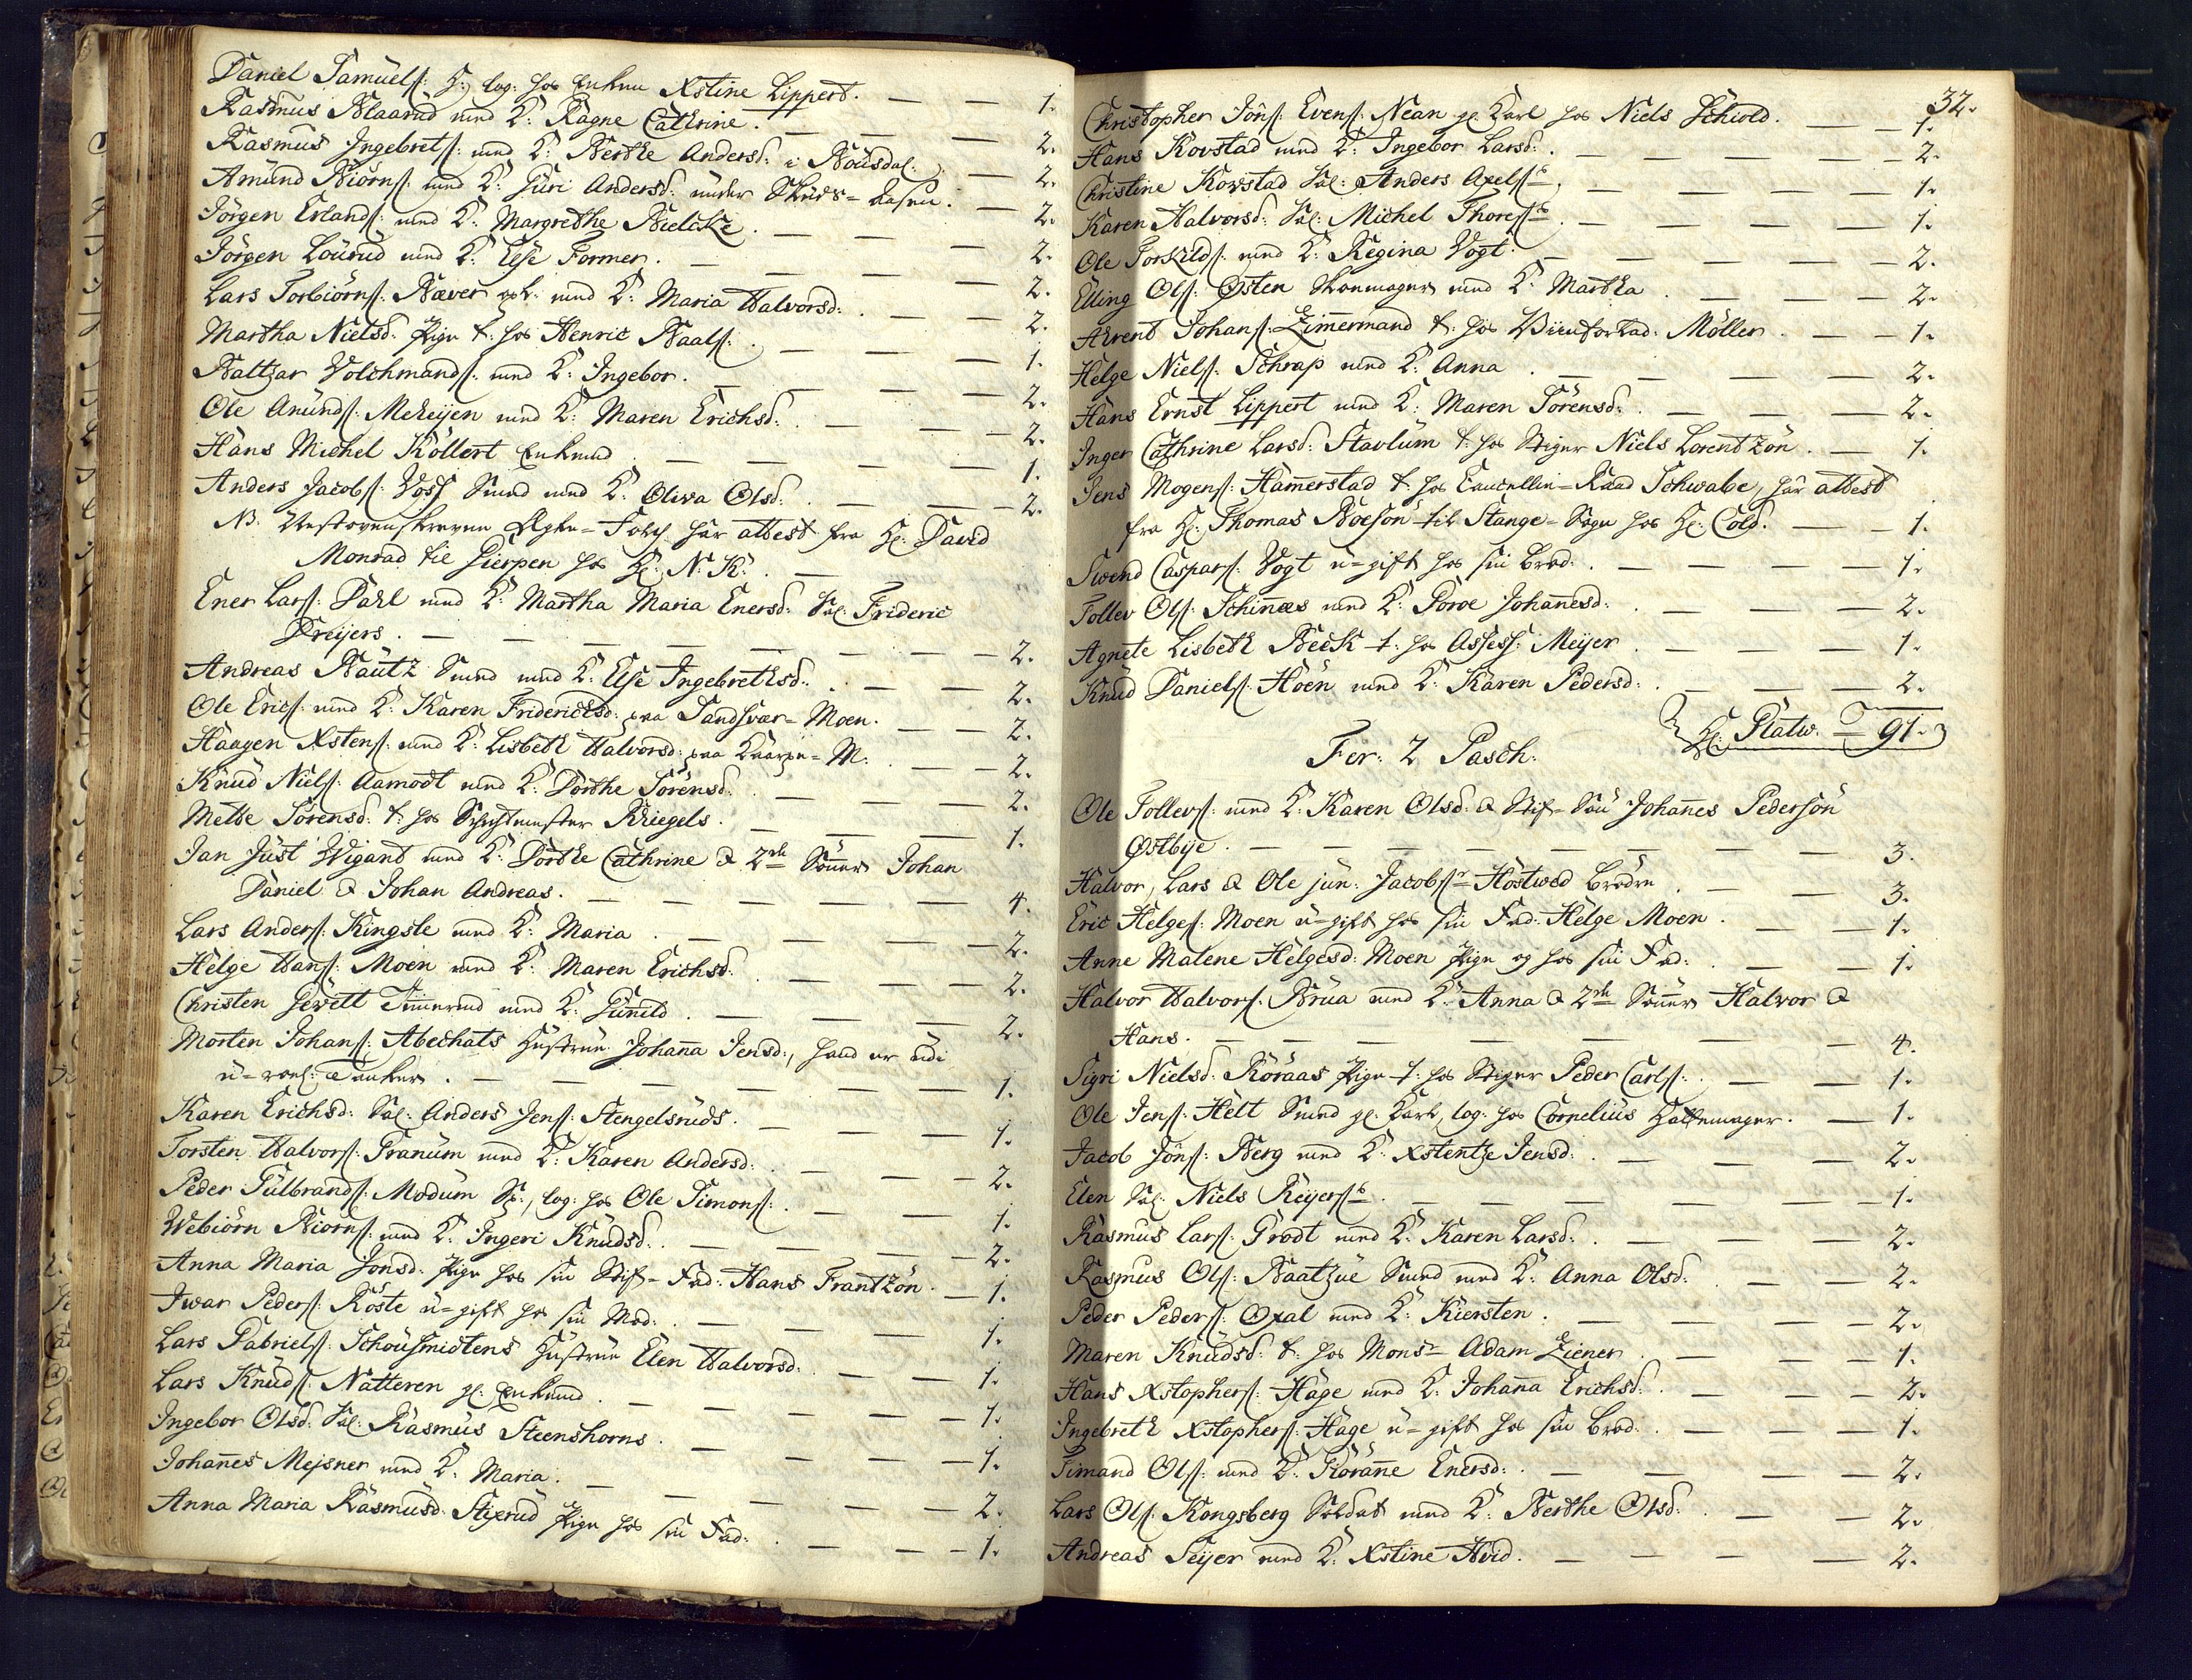 Daniel Samuels: log: hos Enken Xstine Lippert. — — 1.
Rasmus Blaarud med K: Ragne Cathrine. — — 2.
Rasmus Ingebrets: med K: Berthe Andersd: i — 2.
Amund Biörns: med K: Guri Andersd: under — 2.
Jörgen Erlands: med K: Margrethe Bielcke. — — — 2.
Jörgen Lourud med K: Else Former. — — — — 2.
Lars Torbiörns: Bæver med K: Maria Halvorsd: — 2.
Martha Nielsd: Pige t: hos Henric Baals: — — — 1.
Baltzar Volchmands: med K: Ingebor. — — — 2.
Ole Anunds: Meheyen med K: Maren Erichsd: — — 2.
Hans Michel Köllert Enkemd — — — — 1.
Anders Jacobs: Voss Smed med K: Oliva Olsd: — — 2.
NB. har attest fra Hr: David
Monrad til Gierpen hos Hr: N. K. —
Ener Lars: Dahl med K: Martha Maria Enersd: Sal: Frideric
Dreyers. — — — — — — 2.
Andreas Bautz Smed med K: Else Ingebrethsd: — — 2.
Ole Erics: med K: Karen Friderichsd: paa Sandsvær-Moen. — 2.
Haagen Xstens: med K: Lisbeth Halvorsd: paa — 2.
Knud Niels: Aamodt med K: Dorthe Sörensd: — — — 2.
Mette Sörensd: t: hos Kriegels. — — — 1.
Jan Just Wigant med K: Dorthe Cathrine & 2de Sönner Johan
Daniel & Johan Andreas. — — — — — 4.
Lars Anders: Kingste med K: Maria. — — — — 2.
Helge Hans: Moen med K: Maren Erichsd: — — — 2.
Christen Gewelt med K: Gunild. — — — 2.
Morten Johans: Abechats Hustrue Johanna Jensd:,
— — — — — — 1.
Karen Erichsd: Sal: Anders Jens: Stengelsruds. — — — 1.
Torsten Halvors: Tranum med K: Karen Andersd: — — 2.
Peder Gulbrands: Modum log: hos Ole Simons: — — 1.
Webiörn Biorns: med K: Ingeri Knudsd: — — — 2.
Anna Maria Jonsd: Pige hos sin Stif-Fad: Hans Frantzön. — 1.
Iwar Peders: Röste u-gift hos sin Mod: — — — 1.
Lars Gabriels: Schousmidtens Hustrue Elen Halvorsd: — — 1.
Lars Knuds: Natteren gl: Enkemd. — — — — 1.
Ingebor Olsd: Sal: Rasmus Steenshorns. — — — 1.
Johannes Mejsner med K: Maria. — — — — 2.
Anna Maria Rasmusd: Stixrud Pige hos sin Fad: — — 1.
32.
Christopher Jöns: Evens: Nean gl: Karl hos Niels Schiold. — — 1.
Hans Kovstad med K: Ingebor Larsd: — — — — 2.
Christine Kovstad Sal: Anders Axels: — — — — 1.
Karen Halvorsd: Sal: Michel Thores: — — — — 1.
Ole Torkilds: med K: Regina Vogt. — — — — 2.
Elling Ols: Østen Skoemager med K: Martha. — — — 2.
Ahrent Johans: Zimmermand t: hos Möller. — — 1.
Helge Niels: Schrap med K: Anna. — — — — 2.
Hans Ernst Lippert med K: Maren Sörensd: — — — 2.
Inger Cathrine Larsd: Stavlum t: hos Stiger Niels Lorentzön. — 1.
Jens Mogens: Hammerstad t: hos Cancellie-Raad Schwabe, har attest
fra Hr: Thomas Boeson til Stange-Sogn hos Hr: Cold. — — 1.
Swend Caspars: Vogt u-gift hos sin Brod: — — — — 1.
Tollev Ols: Schinnes med K: Goroe Johannesd: — — — 2.
Agnete Lisbeth Beck t: hos Assess: Meyer — — — — 1.
Knud Daniels: Höen med K: Karen Pedersd: — — — 2.
Hr: Platw. = 91.
Fer: 2 Pasch:
Ole Tollevs: med K: Karen Olsd: & Stif-Sön Johannes Pedersön
Østbye. — — — — — — — 3.
Halvor, Lars & Ole jun: Jacobs: Hostwed Brödre. — — 3.
Eric Helges: Moen u-gift hos sin Fad: Helge Moen. — — 1.
Anne Malene Helgesd: Moen Pige og hos sin Fad: — — 1.
Halvor Halvors: Brua med K: Anna & 2de Sönner Halvor &
Hans. — — — — — — — 4.
Sigri Nielsd: Röraas Pige t: hos Stiger Peder Carls: — — 1.
Ole Jens: Helt Smed gl: Karl, log: hos Cornelius Hattemager. — 1.
Jacob Jöns: Berg med K: Xstentze Jensd: — — — 2.
Elen Sal: Niels Reyers: — — — — — 1.
Rasmus Lars: Grodt med K: Karen Larsd: — — — 2.
Rasmus Ols: Baatzue Smed med K: Anna Olsd: — — 2.
Peder Peders: Oxal med K: Kiersten. — — — — 2.
Maren Knudsd: t: hos Monsr Adam Ziener. — — — 1.
Hans Xstophers: Hage med K: Johanna Erichsd: — — — 2.
Ingebreth Xstophers: Hage u-gift hos sin Brod: — — — 1.
Simand Ols: med K: Göranne Enersd: — — — — 2.
Lars Ols: Kongsberg Soldat med K: Berthe Olsd: — — 2.
Andreas Seyer med K: Xstine Hvid. — — — — 2.